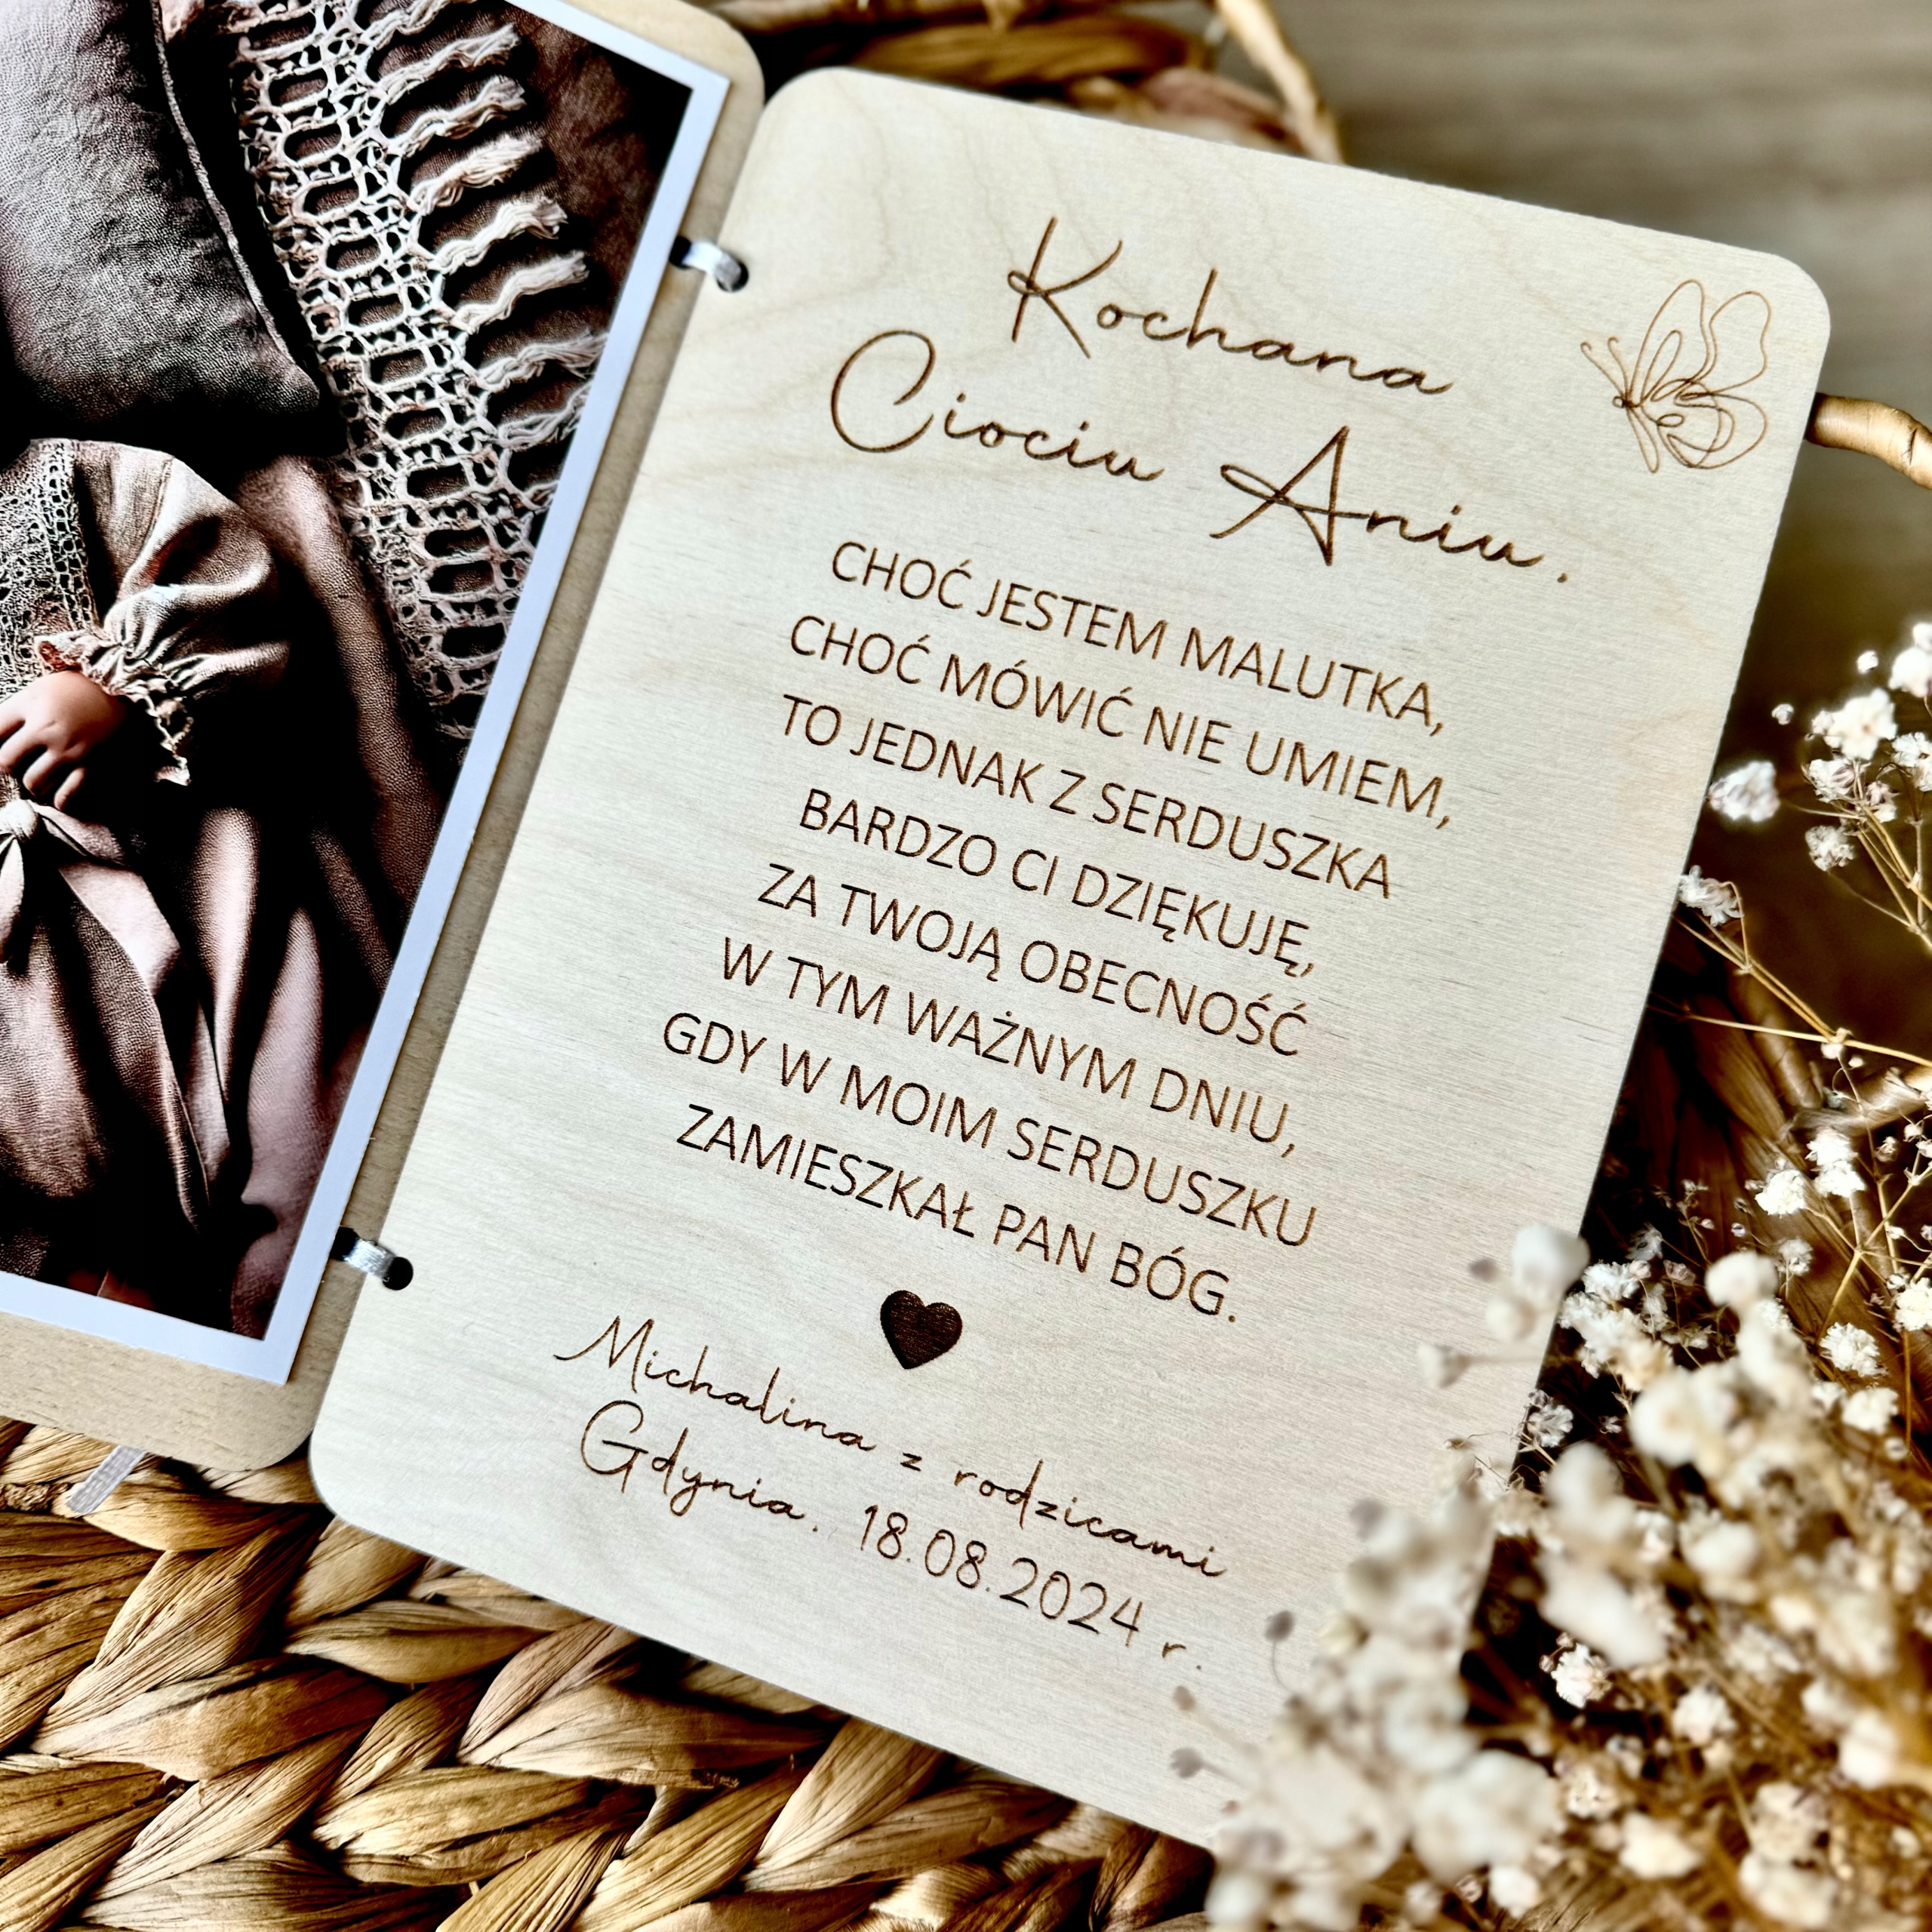 Kochana
Ciociu Aniu.
CHOĆ JESTEM MALUTKA,
CHOĆ MÓWIĆ NIE UMIEM,
TO JEDNAK Z SERDUSZKA
BARDZO CI DZIĘKUJĘ,
ZA TWOJĄ OBECNOŚĆ
W TYM WAŻNYM DNIU,
GDY W MOIM SERDUSZKU
ZAMIESZKAŁ PAN BÓG.
Michalina z rodzicami
Gdynia. 18.08.2024 r.